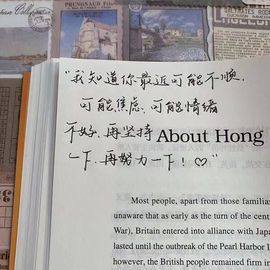 PRUNGNAUD FILS
"我知道你最近可能不顺,
可能焦虑、可能情绪
不好,再坚持
一下,再努力一下!♡"
About Hong
Most people, apart from those familias
unaware that as early as the turn of the cent
War), Britain entered into alliance with Japa
lasted until the outbreak of the Pearl Harbor I
however, the British people remained firm in